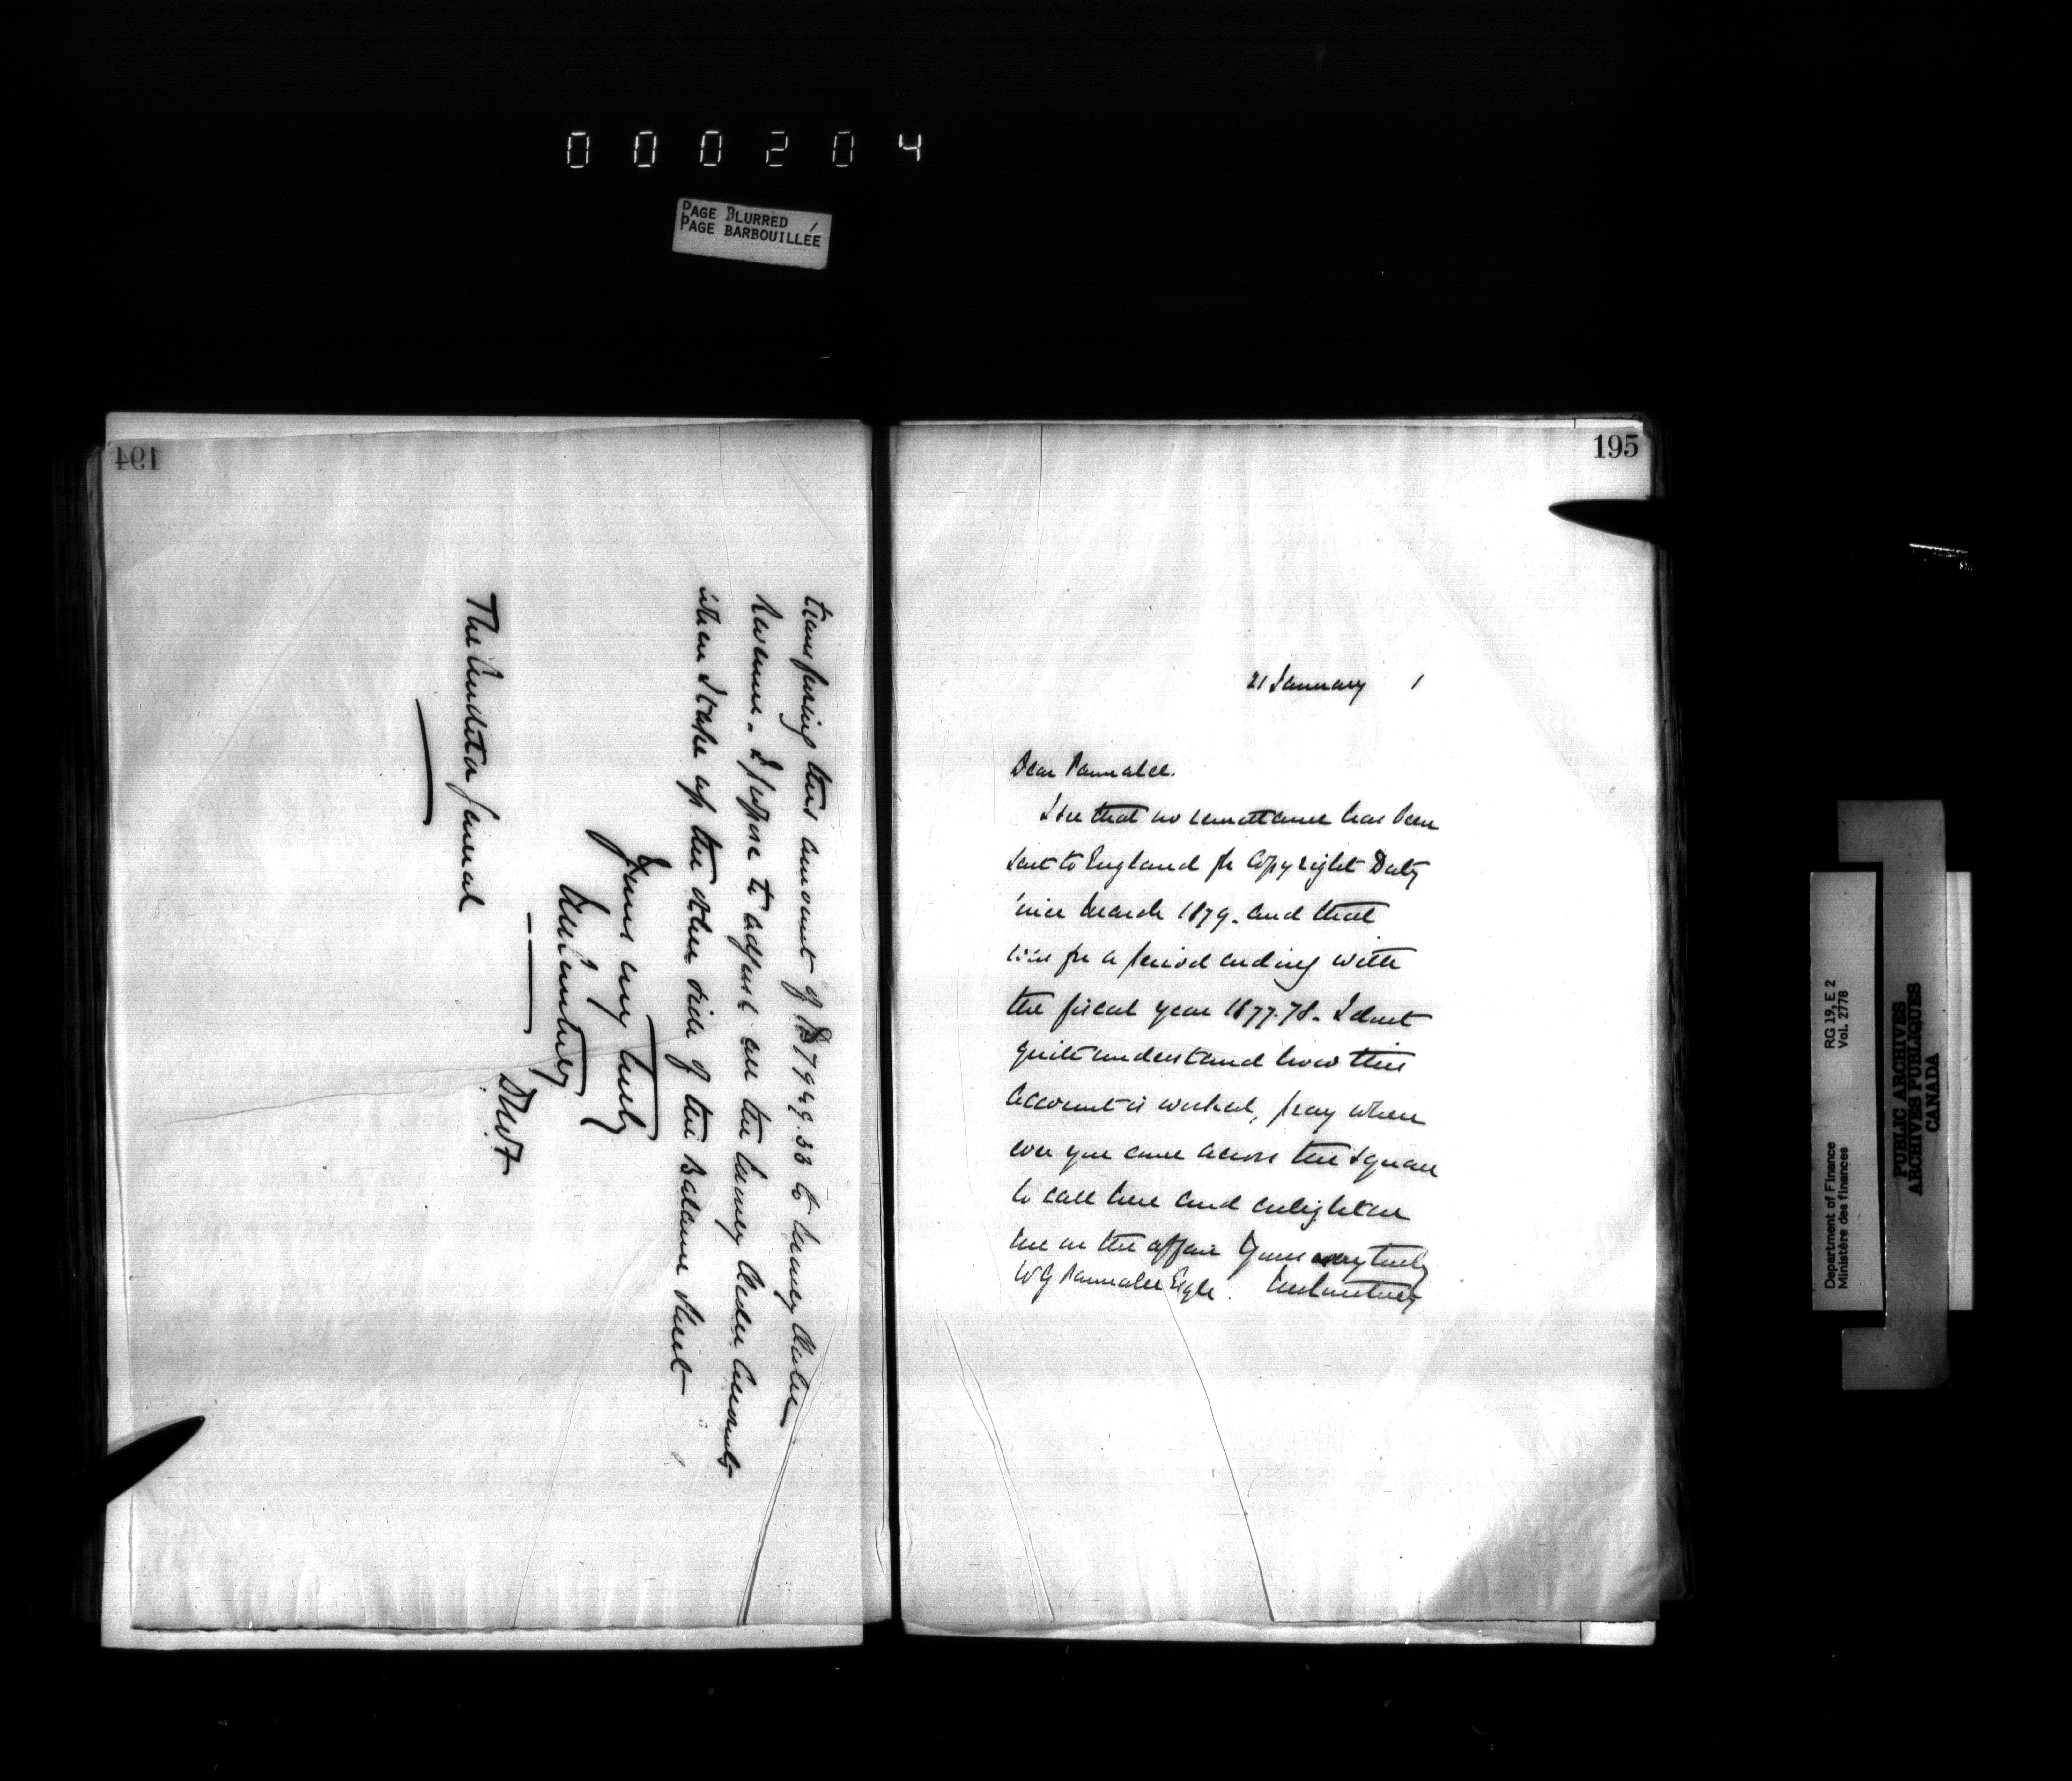 000204
PAGE BLURRED
PAGE BARBOUILLÉE
194
transferring this amount of $7949.33 to Money Order
Revenue. I propose to adjust all the Money Order Accounts
when I take up the other side of the Balance Sheet
Yours very truly
The Auditor General
195
21 January 1
Dear Parmalee.
I see that no remittance has been
sent to England for Copyright Duty
since March 1879. and that
was for a period ending with
the fiscal year 1877-78. I dont
quite understand how this
account is worked, pray when
ever you come across the square
to call here and enlighten
me on the affair Yours very truly
W G Parmalee Esqre. J M Courtney
RG 19, E 2
Vol. 2778
Department of Finance
Ministère des finances
PUBLIC ARCHIVES
ARCHIVES PUBLIQUES
CANADA